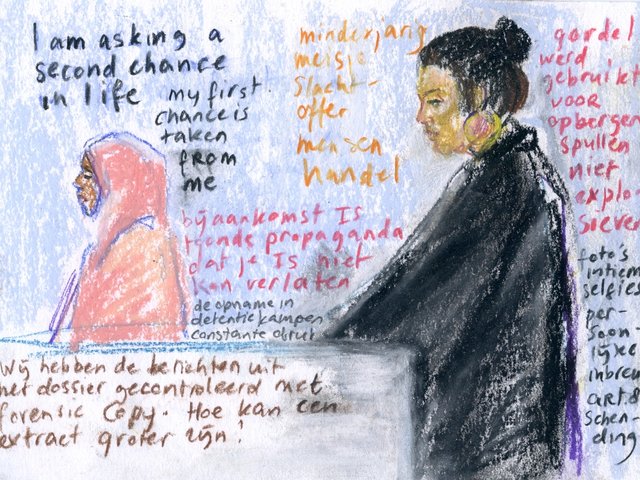 I am asking a
second chance
in life
my first
chance is
taken
from
me
minderjarig
meisje
Slacht-
offer
mensen
handel
gordel
werd
gebruikt
voor
opbergen
spullen
niet
explo
sieven
bij aankomst IS
propaganda
dat je IS niet
kan verlaten
de opname in
detentie kampen
constante
foto's
intiem
selfies
per-
soon
lijke
inbreu
art. 8
schen-
ding
Wij hebben de berichten uit
het dossier gecontroleerd met
forensic copy. Hoe kan een
extract groter zijn!